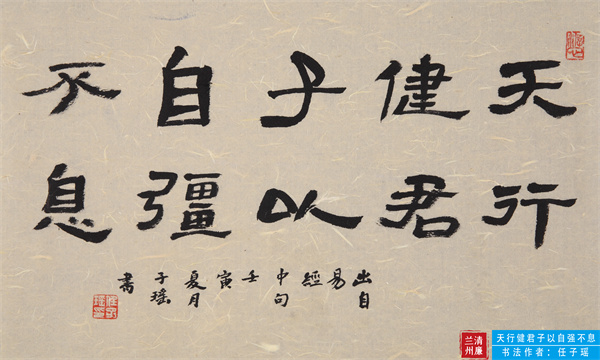 天行
健君
子以
自彊
不息
出自
易
經
中句
壬
寅
夏月
子瑤
書
清廉
兰州
天行健君子以自强不息
书法作者：任子瑶